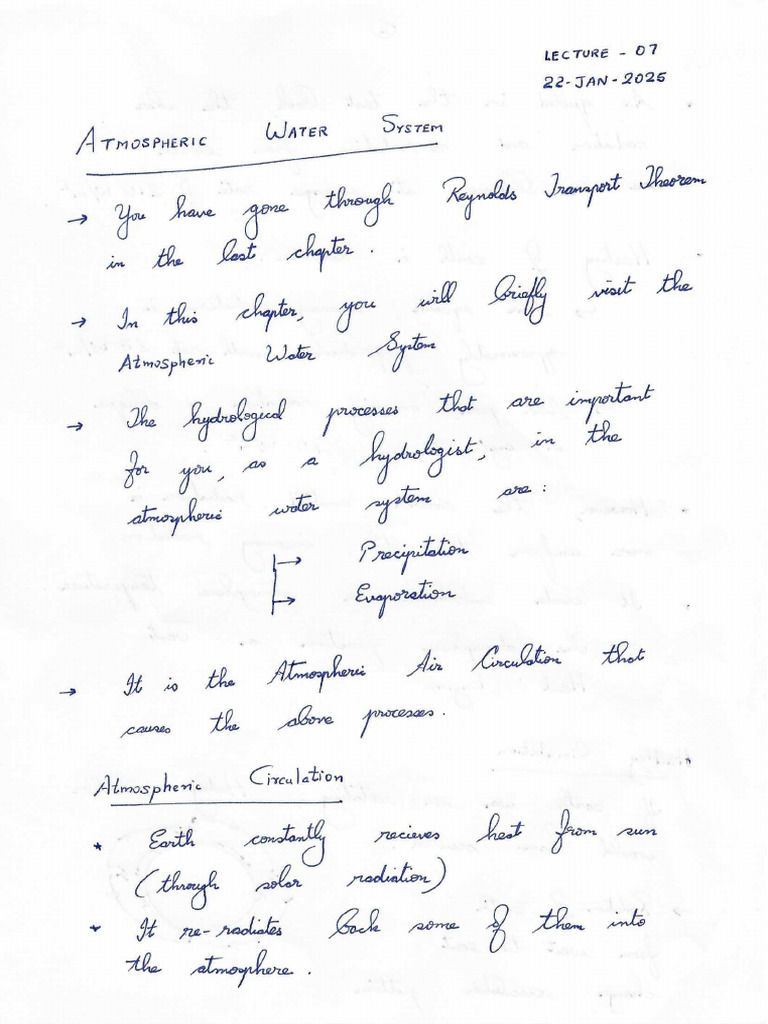 LECTURE - 07
22-JAN-2025
ATMOSPHERIC WATER SYSTEM
→ You have gone through Reynolds Transport Theorem
in the last chapter.
→ In this chapter, you will briefly visit the
Atmospheric Water System
→ The hydrological processes that are important
for you, as a hydrologist, in the
atmospheric water system are:
→ Precipitation
→ Evaporation
→ It is the Atmospheric Air Circulation that
causes the above processes.
Atmospheric Circulation
* Earth constantly recieves heat from sun
(through solar radiation)
* It re-radiates back some of them into
the atmosphere.